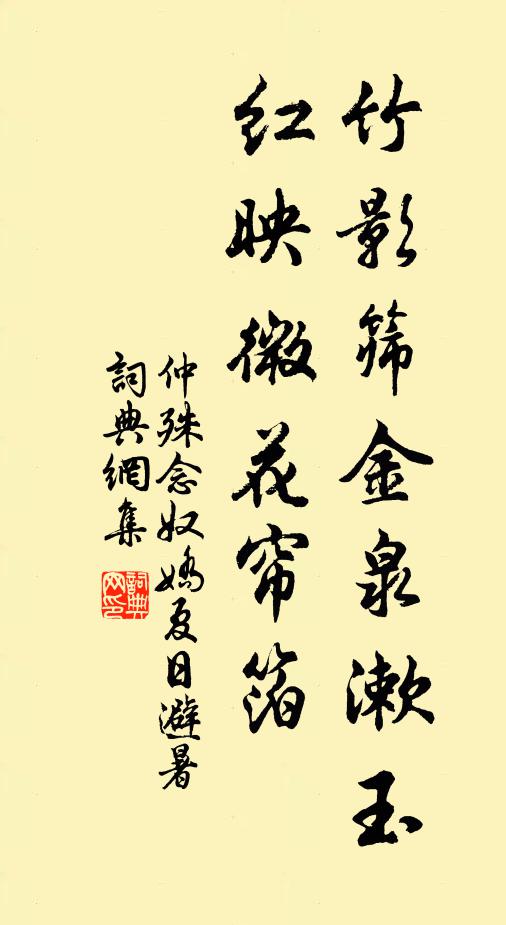 竹影筛金泉漱玉
红映微花帘箔
仲殊念奴娇夏日避暑
詞典網集
詞典网印